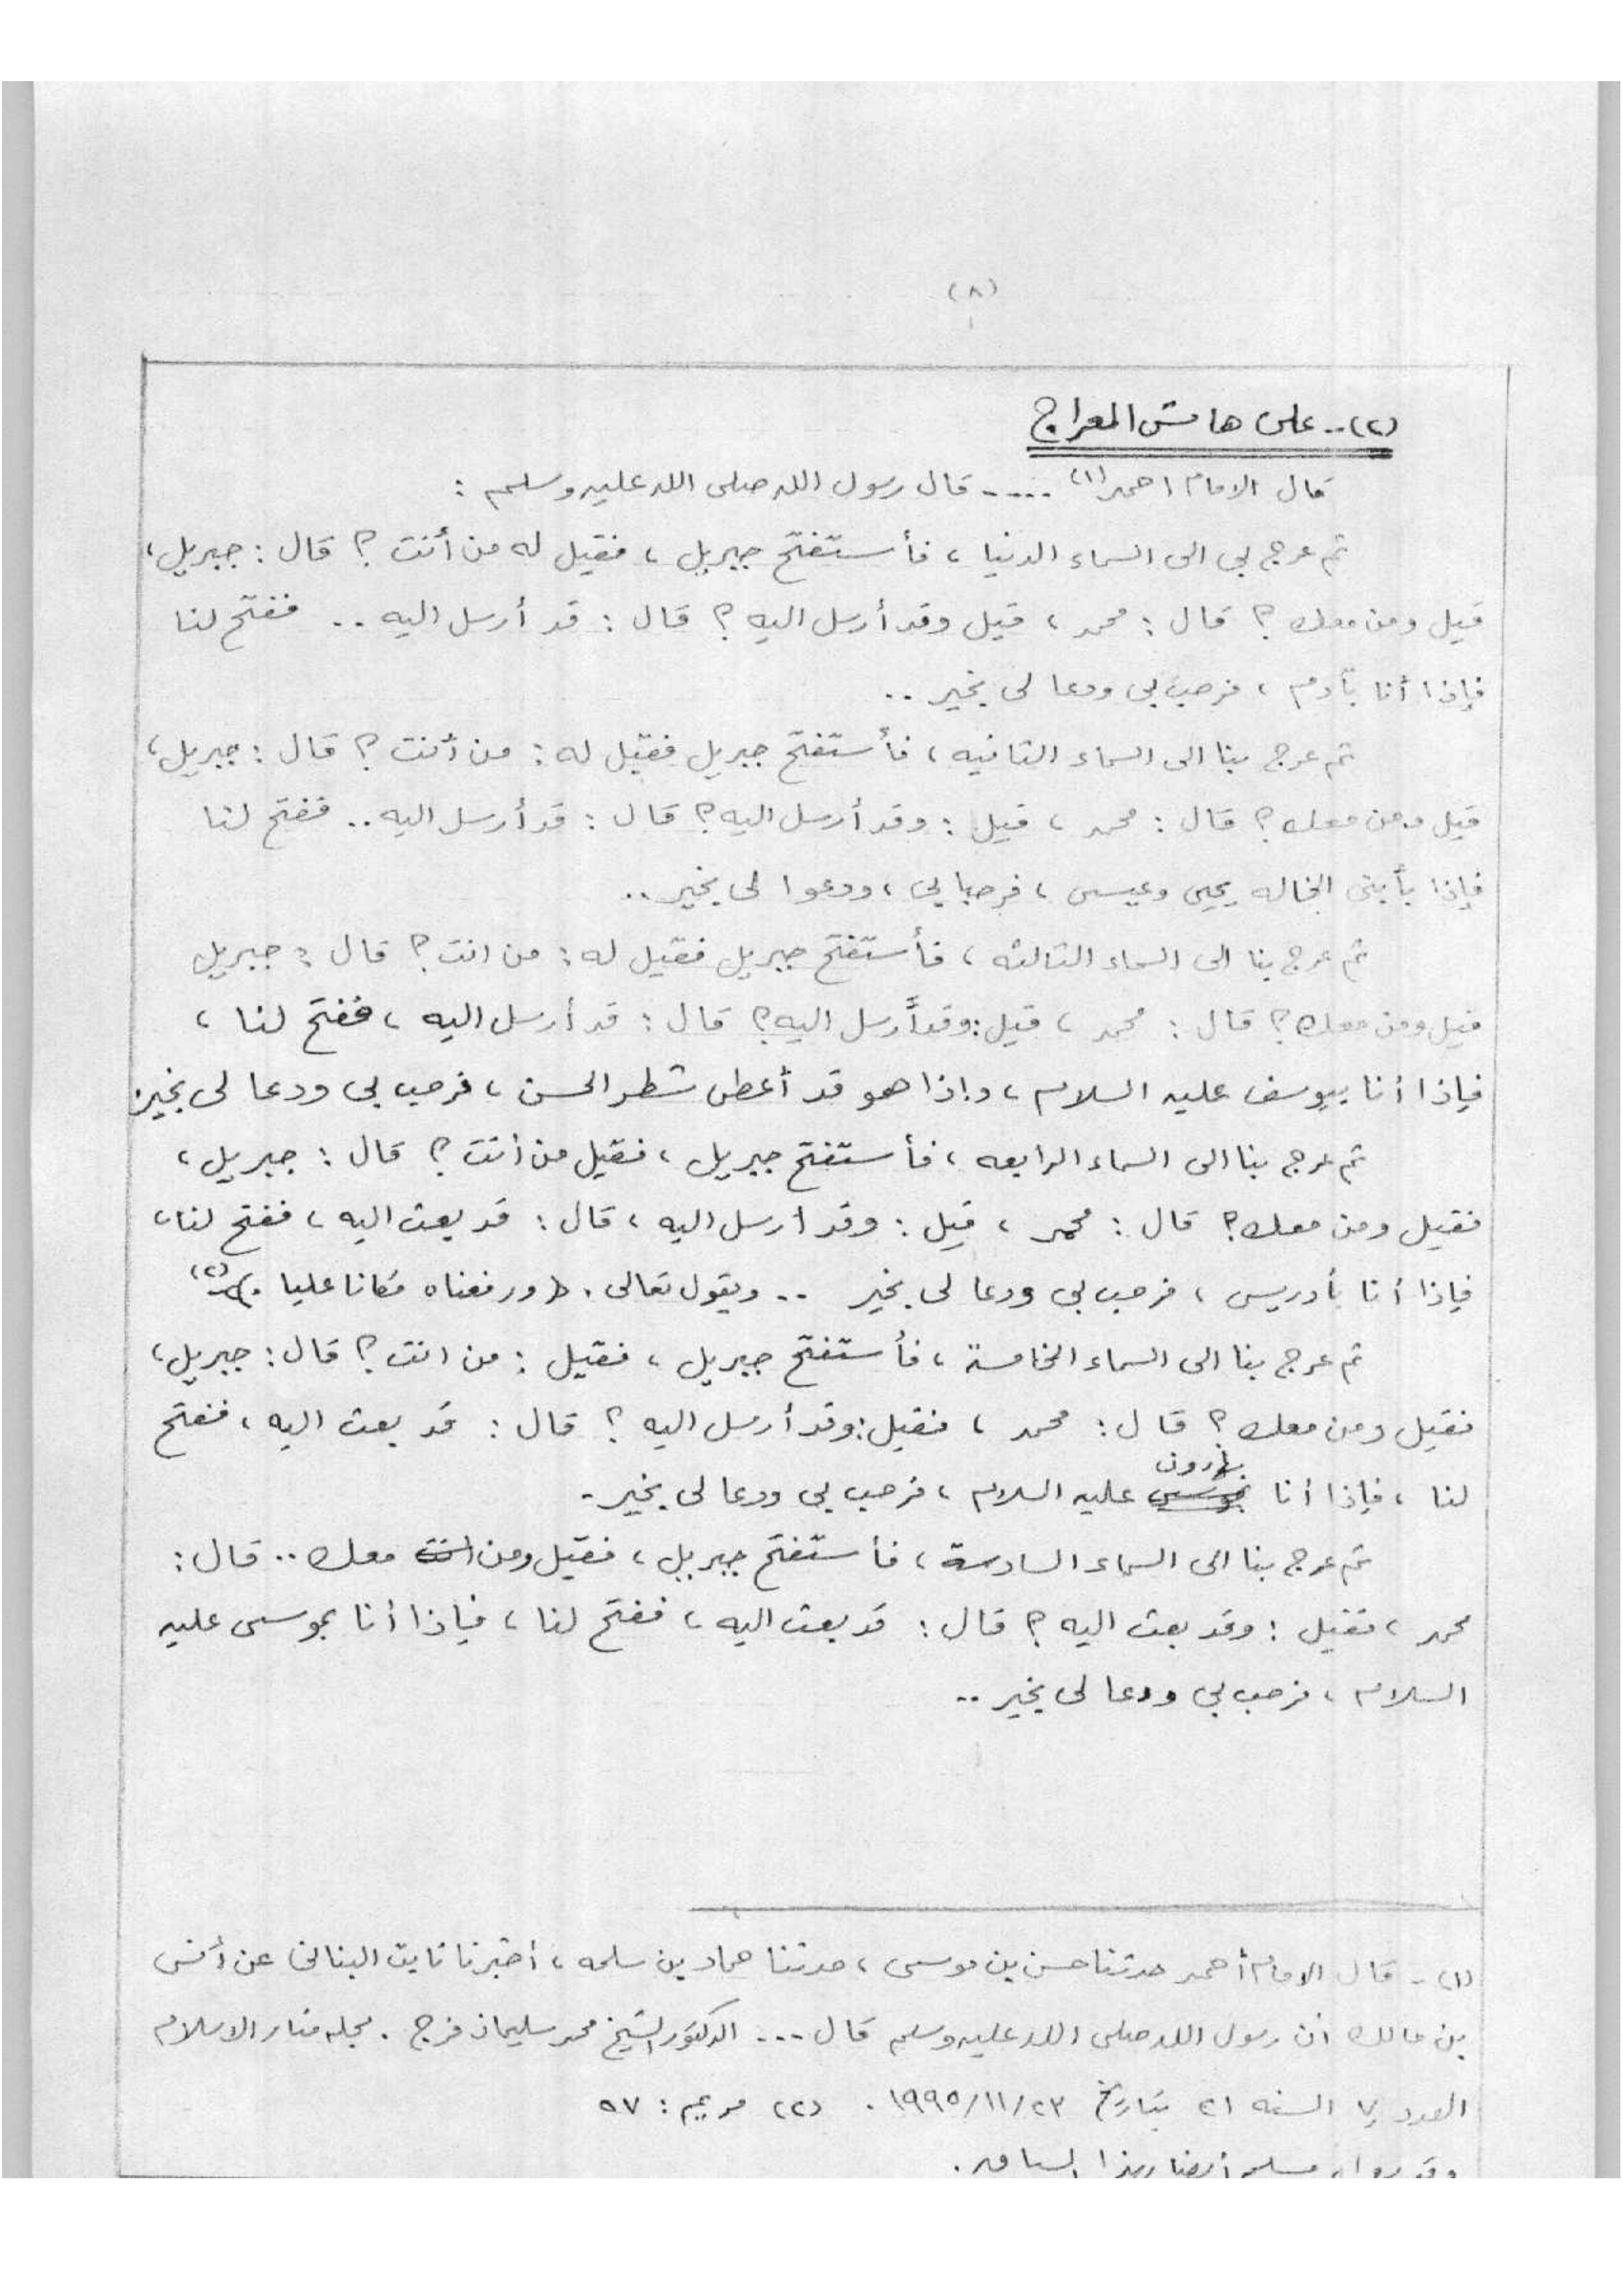 (٨)
(٢)-- على هامش المعراج
قال الامام احمد(١) ---- قال رسول الله صلى الله عليه وسلم :
ثم عرج بي الى السماء الدنيا ، فأستفتح جبريل ، فقيل له من أنت ؟ قال : جبريل ،
قيل ومن معك ؟ قال : محمد ، قيل وقد أرسل اليه ؟ قال : قد أرسل اليه .. ففتح لنا
فإذا أنا بآدم ، فرحب بي ودعا لى بخير ..
ثم عرج بنا الى السماء الثانيه ، فأستفتح جبريل فقيل له : من أنت ؟ قال : جبريل ،
قيل ومن معك ؟ قال : محمد ، قيل : وقد أرسل اليه ؟ قال : قد أرسل اليه .. ففتح لنا
فإذا بأبنى الخاله يحيى وعيسى ، فرحبا بي ، ودعوا لى بخير ..
ثم عرج بنا الى السماء الثالثه ، فأستفتح جبريل فقيل له : من انت ؟ قال : جبريل
قيل ومن معك ؟ قال : محمد ، قيل : وقد أرسل اليه ؟ قال : قد أرسل اليه ، ففتح لنا ،
فإذا أنا بيوسف عليه السلام ، وإذا هو قد أعطى شطر الحسن ، فرحب بى ودعا لى بخير.
ثم عرج بنا الى السماء الرابعه ، فأستفتح جبريل ، فقيل من أنت ؟ قال : جبريل ،
فقيل ومن معك ؟ قال : محمد ، قيل : وقد ارسل اليه ، قال : قد بعث اليه ، ففتح لنا ،
فإذا أنا بأدريس ، فرحب بى ودعا لى بخير .. ويقول تعالى . ﴿ ورفعناه مكانا عليا . ﴾(٢)
ثم عرج بنا الى السماء الخامسة ، فأستفتح جبريل ، فقيل : من انت ؟ قال : جبريل ،
فقيل ومن معك ؟ قال : محمد ، فقيل : وقد أرسل اليه ؟ قال : قد بعث اليه ، ففتح
لنا ، فإذا أنا بموسى بهارون عليه السلام ، فرحب بى ودعا لى بخير -
ثم عرج بنا الى السماء السادسة ، فأستفتح جبريل ، فقيل ومن انت معك .. قال :
محمد ، فقيل : وقد بعث اليه ؟ قال : قد بعث اليه ، ففتح لنا ، فإذا أنا بموسى عليه
السلام ، فرحب بي ودعا لى بخير --
(١) - قال الامام أحمد حدثنا حسن بن موسى ، حدثنا حماد بن سلمه ، أخبرنا ثابت البنانى عن أنس
بن مالك ان رسول الله صلى الله عليه وسلم قال --- الدكتور الشيخ محمد سليمان فرج . مجله منار الاسلام
العدد ٧ السنه ٢١ بتاريخ ١٩٩٥/١١/٢٣ . (٢) مريم : ٥٧
وقد رواه مسلم أيضا بهذا السياق .